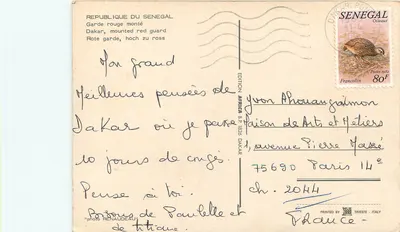 REPUBLIQUE DU SENEGAL
Garde rouge monté
Dakar, mounted red guard
Rote garde, hoch zu ross
Mon grand
Meilleures pensées de
Dakar où je passe
10 jours de congés.
Pense à toi.
de
de titique.
EDITION AFRICA B.P. DAKAR
SENEGAL
80f
Yvon
Maison de Arts et Métiers
1, avenue Pierre Massé
75690 Paris 14e
ch. 2044
France
PRINTED BY
ITALY